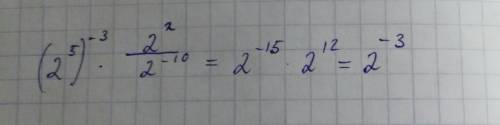 (2⁵)⁻³ · 2² / 2⁻¹⁰ = 2⁻¹⁵ · 2¹² = 2⁻³